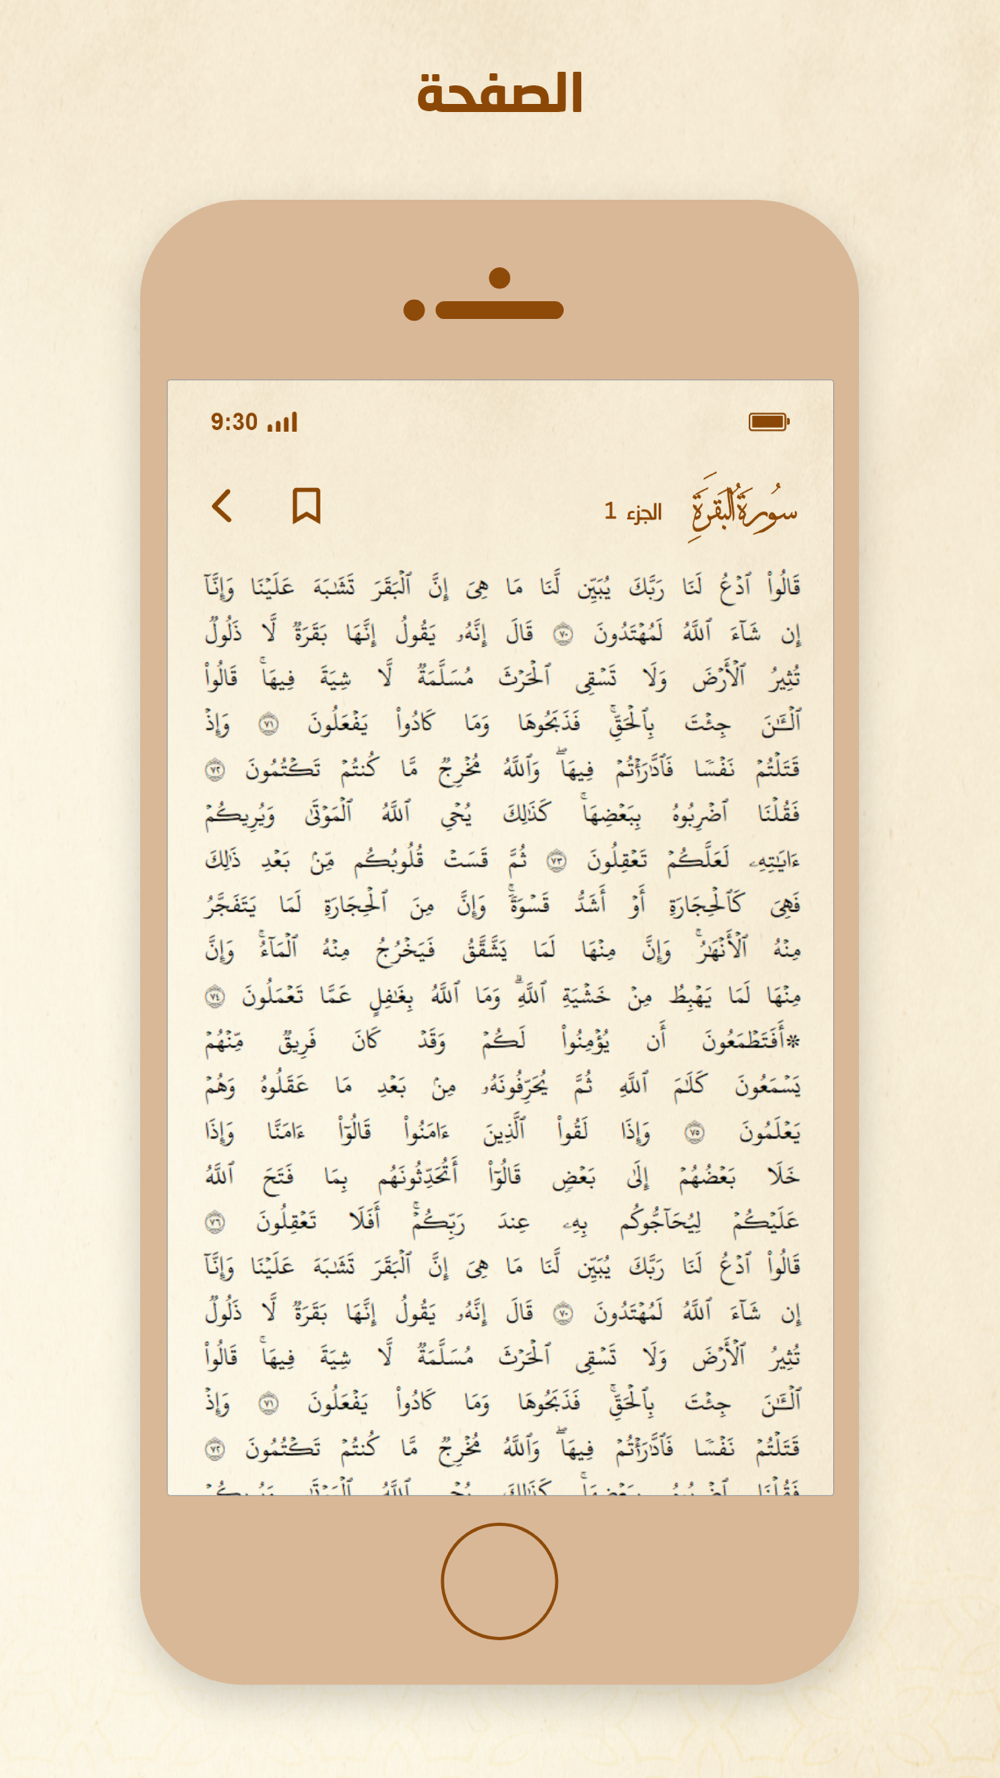 الصفحة
9:30
سُورَةُ الْبَقَرَةِ الجزء 1
قَالُوا۟ ٱدْعُ لَنَا رَبَّكَ يُبَيِّن لَّنَا مَا هِىَ إِنَّ ٱلْبَقَرَ تَشَٰبَهَ عَلَيْنَا وَإِنَّآ
إِن شَآءَ ٱللَّهُ لَمُهْتَدُونَ ٧٠ قَالَ إِنَّهُۥ يَقُولُ إِنَّهَا بَقَرَةٌ لَّا ذَلُولٌ
تُثِيرُ ٱلْأَرْضَ وَلَا تَسْقِى ٱلْحَرْثَ مُسَلَّمَةٌ لَّا شِيَةَ فِيهَا ۚ قَالُوا۟
ٱلْـَٰٔنَ جِئْتَ بِٱلْحَقِّ ۚ فَذَبَحُوهَا وَمَا كَادُوا۟ يَفْعَلُونَ ٧١ وَإِذْ
قَتَلْتُمْ نَفْسًا فَٱدَّٰرَْٰٔتُمْ فِيهَا ۖ وَٱللَّهُ مُخْرِجٌ مَّا كُنتُمْ تَكْتُمُونَ ٧٢
فَقُلْنَا ٱضْرِبُوهُ بِبَعْضِهَا ۚ كَذَٰلِكَ يُحْىِ ٱللَّهُ ٱلْمَوْتَىٰ وَيُرِيكُمْ
ءَايَٰتِهِۦ لَعَلَّكُمْ تَعْقِلُونَ ٧٣ ثُمَّ قَسَتْ قُلُوبُكُم مِّنۢ بَعْدِ ذَٰلِكَ
فَهِىَ كَٱلْحِجَارَةِ أَوْ أَشَدُّ قَسْوَةً ۚ وَإِنَّ مِنَ ٱلْحِجَارَةِ لَمَا يَتَفَجَّرُ
مِنْهُ ٱلْأَنْهَٰرُ ۚ وَإِنَّ مِنْهَا لَمَا يَشَّقَّقُ فَيَخْرُجُ مِنْهُ ٱلْمَآءُ ۚ وَإِنَّ
مِنْهَا لَمَا يَهْبِطُ مِنْ خَشْيَةِ ٱللَّهِ ۗ وَمَا ٱللَّهُ بِغَٰفِلٍ عَمَّا تَعْمَلُونَ ٧٤
*أَفَتَطْمَعُونَ أَن يُؤْمِنُوا۟ لَكُمْ وَقَدْ كَانَ فَرِيقٌ مِّنْهُمْ
يَسْمَعُونَ كَلَٰمَ ٱللَّهِ ثُمَّ يُحَرِّفُونَهُۥ مِنۢ بَعْدِ مَا عَقَلُوهُ وَهُمْ
يَعْلَمُونَ ٧٥ وَإِذَا لَقُوا۟ ٱلَّذِينَ ءَامَنُوا۟ قَالُوٓا۟ ءَامَنَّا وَإِذَا
خَلَا بَعْضُهُمْ إِلَىٰ بَعْضٍ قَالُوٓا۟ أَتُحَدِّثُونَهُم بِمَا فَتَحَ ٱللَّهُ
عَلَيْكُمْ لِيُحَآجُّوكُم بِهِۦ عِندَ رَبِّكُمْ ۚ أَفَلَا تَعْقِلُونَ ٧٦
قَالُوا۟ ٱدْعُ لَنَا رَبَّكَ يُبَيِّن لَّنَا مَا هِىَ إِنَّ ٱلْبَقَرَ تَشَٰبَهَ عَلَيْنَا وَإِنَّآ
إِن شَآءَ ٱللَّهُ لَمُهْتَدُونَ ٧٠ قَالَ إِنَّهُۥ يَقُولُ إِنَّهَا بَقَرَةٌ لَّا ذَلُولٌ
تُثِيرُ ٱلْأَرْضَ وَلَا تَسْقِى ٱلْحَرْثَ مُسَلَّمَةٌ لَّا شِيَةَ فِيهَا ۚ قَالُوا۟
ٱلْـَٰٔنَ جِئْتَ بِٱلْحَقِّ ۚ فَذَبَحُوهَا وَمَا كَادُوا۟ يَفْعَلُونَ ٧١ وَإِذْ
قَتَلْتُمْ نَفْسًا فَٱدَّٰرَْٰٔتُمْ فِيهَا ۖ وَٱللَّهُ مُخْرِجٌ مَّا كُنتُمْ تَكْتُمُونَ ٧٢
فَقُلْنَا ٱضْرِبُوهُ بِبَعْضِهَا ۚ كَذَٰلِكَ يُحْىِ ٱللَّهُ ٱلْمَوْتَىٰ وَيُرِيكُمْ